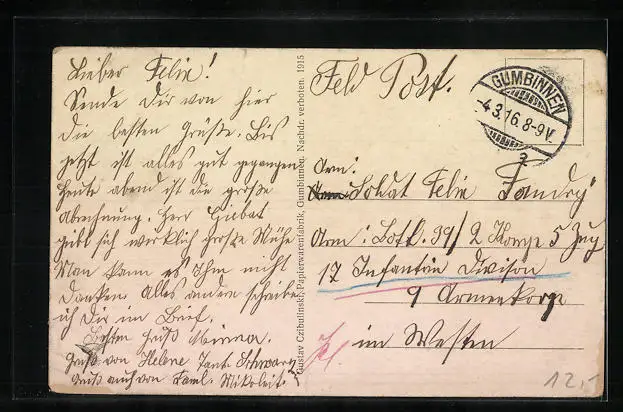 Lieber Felix!
Sende Dir von hier
die besten Grüße. Bis
jetzt ist alles gut gegangen
heute abend ist die große
Abrechnung. Herr
gibt sich wirklich große Mühe
Man kann es Ihm nicht
danken. Alles andere schreibe
ich Dir im Brief.
Besten Gruß Minna.
Gruß von Helene Tant. Schwarz
Gruß auch von Faml. Mikoleit.
Gustav Czibulinski, Papierwarenfabrik, Gumbinnen. Nachdr. verboten. 1915
Feld Post.
GUMBINNEN
-4.3.16.8-9V.
Arm:
Soldat Felix
Arm: Batl. 99/2 Komp 5 Zug
17 Infantrie Divison
9 Armeekorp
im Westen
12,-